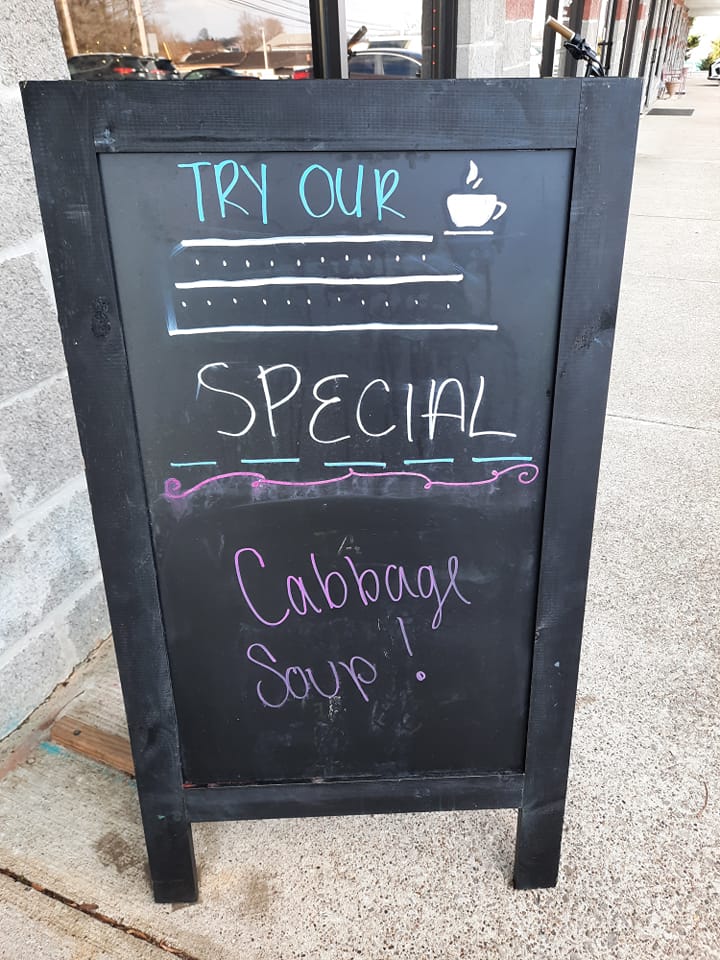 TRY OUR
SPECIAL
Cabbage
Soup!